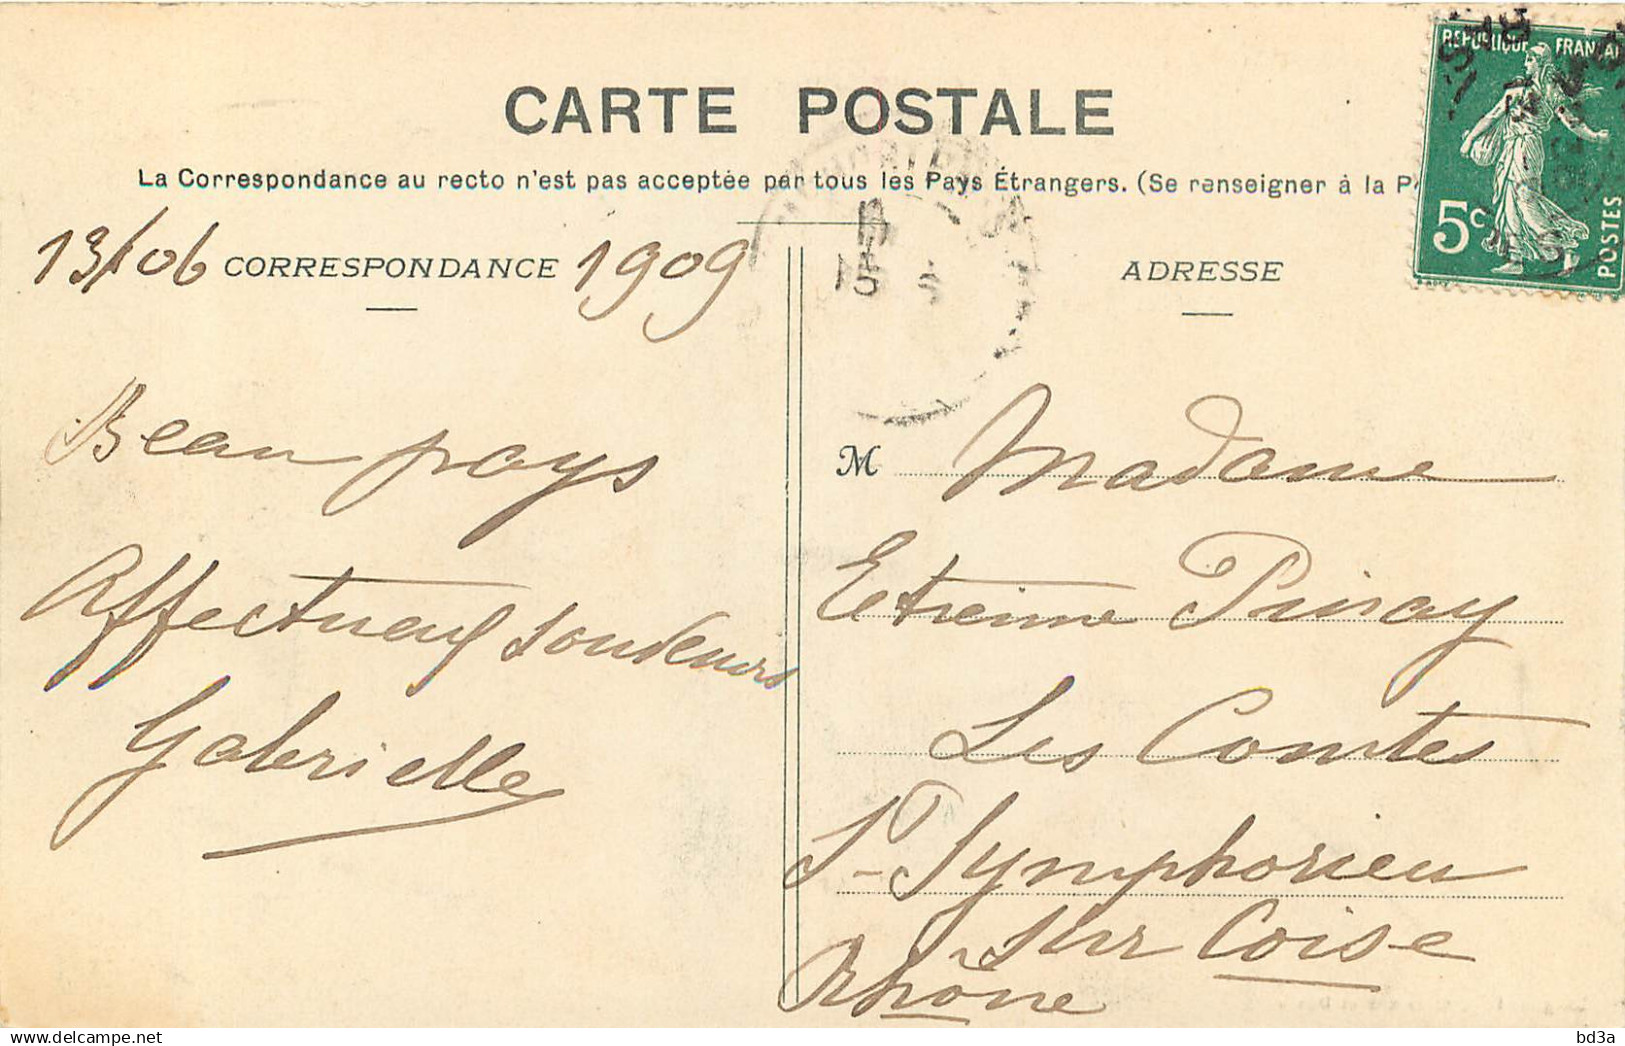 CARTE POSTALE
La Correspondance au recto n'est pas acceptée par tous les Pays Étrangers. (Se renseigner à la P
REPUBLIQUE FRANÇAI
5c
POSTES
13/06 CORRESPONDANCE 1909
ADRESSE
Beau pays
Affectueux souvenirs
Gabrielle
M Madame
Etienne
Les Comtes
St Symphorien
sur Coise
Rhône
bd3a